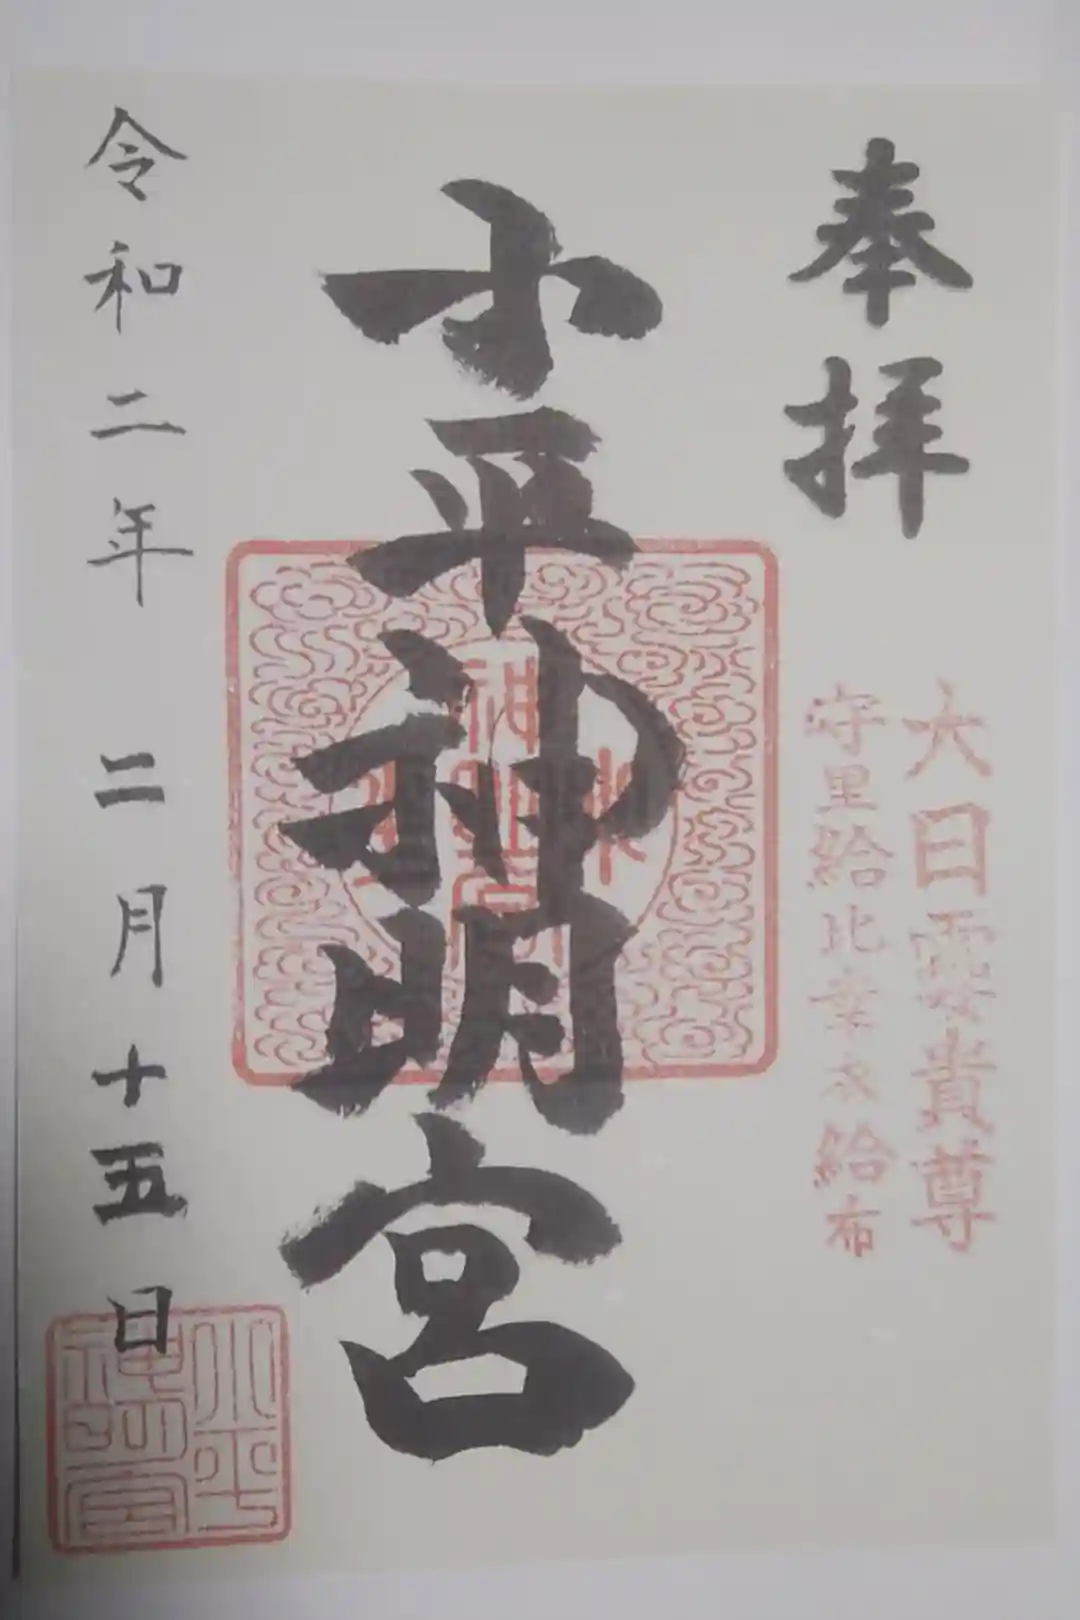 奉拝
大日孁貴尊
守里給比幸衣給布
小平神明宮
令和二年 二月十五日
小平
神明宮